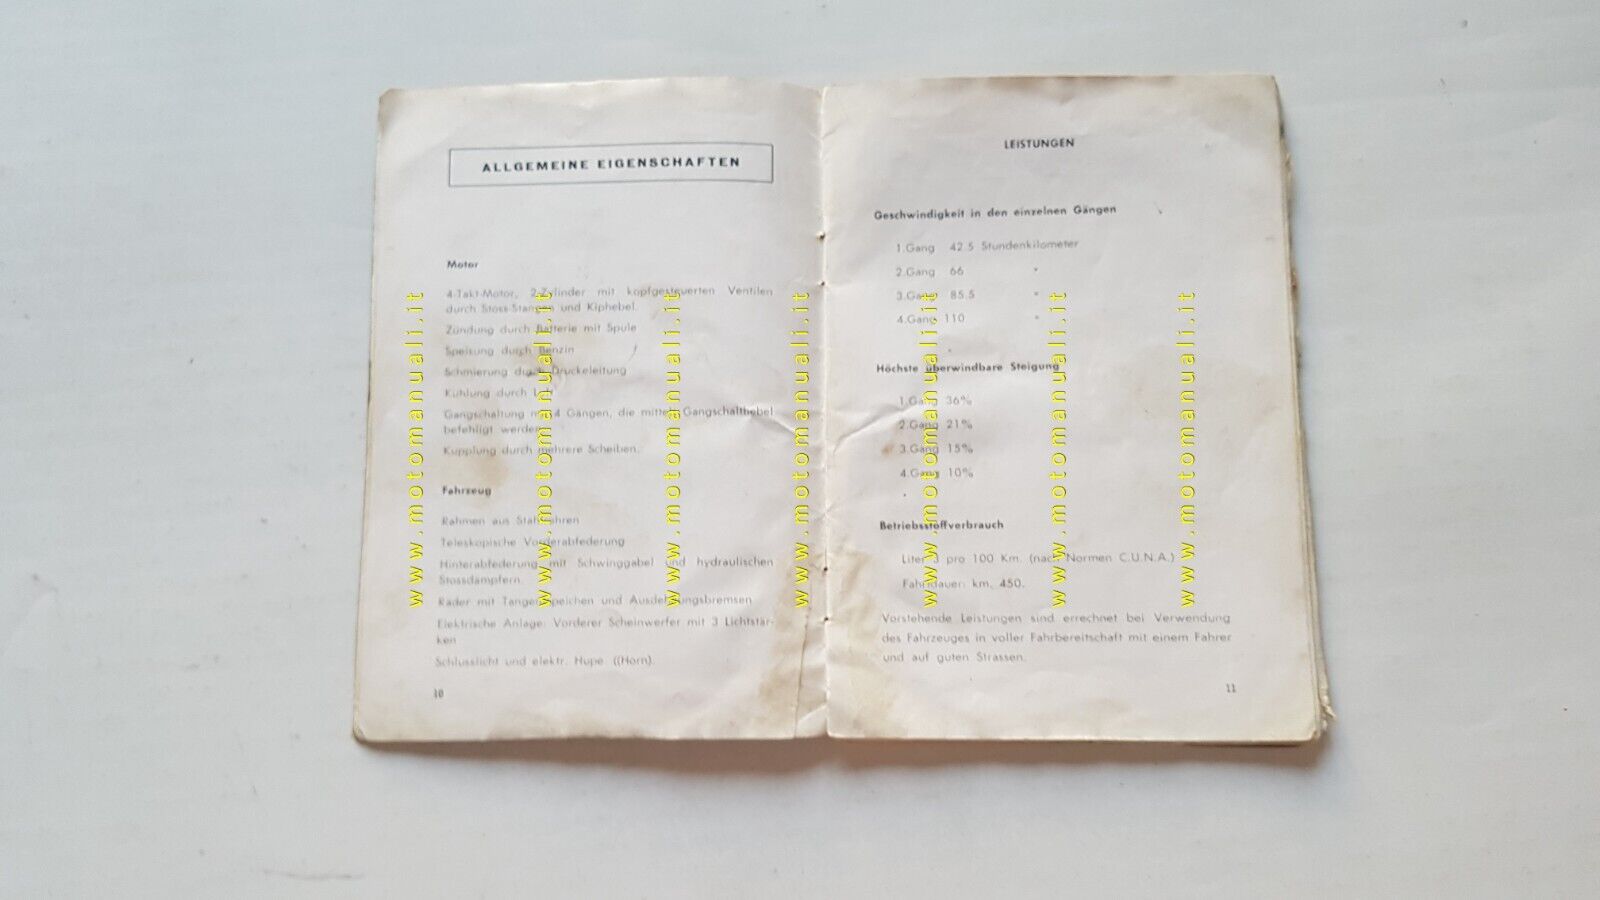 ALLGEMEINE EIGENSCHAFTEN
Motor
4-Takt-Motor, 2-Zylinder mit kopfgesteuerten Ventilen
durch Stoss-Stangen und Kiphebel.
Zündung durch Batterie mit Spule
Speisung durch Benzin
Schmierung durch Druckeleitung
Kuhlung durch Luft
Gangschaltung mit 4 Gängen, die mittels Gangschalthebel
befehligt werden
Kupplung durch mehrere Scheiben.
Fahrzeug
Rahmen aus Stahlrohren
Teleskopische Vorderabfederung
Hinterabfederung mit Schwinggabel und hydraulischen
Stossdämpfern.
Räder mit Tangentspeichen und Ausdehnungsbremsen
Elektrische Anlage: Vorderer Scheinwerfer mit 3 Lichtstär-
ken
Schlusslicht und elektr. Hupe ((Horn).
10
LEISTUNGEN
Geschwindigkeit in den einzelnen Gängen
1.Gang 42.5 Stundenkilometer
2.Gang 66 "
3.Gang 85.5 "
4.Gang 110 "
Höchste überwindbare Steigung
1.Gang 36%
2.Gang 21%
3.Gang 15%
4.Gang 10%
Betriebsstoffverbrauch
Liter pro 100 Km. (nach Normen C.U.N.A.)
Fahrdauer: km. 450.
Vorstehende Leistungen sind errechnet bei Verwendung
des Fahrzeuges in voller Fahrbereitschaft mit einem Fahrer
und auf guten Strassen.
11
www.motomanuali.it
www.motomanuali.it
www.motomanuali.it
www.motomanuali.it
www.motomanuali.it
www.motomanuali.it
www.motomanuali.it